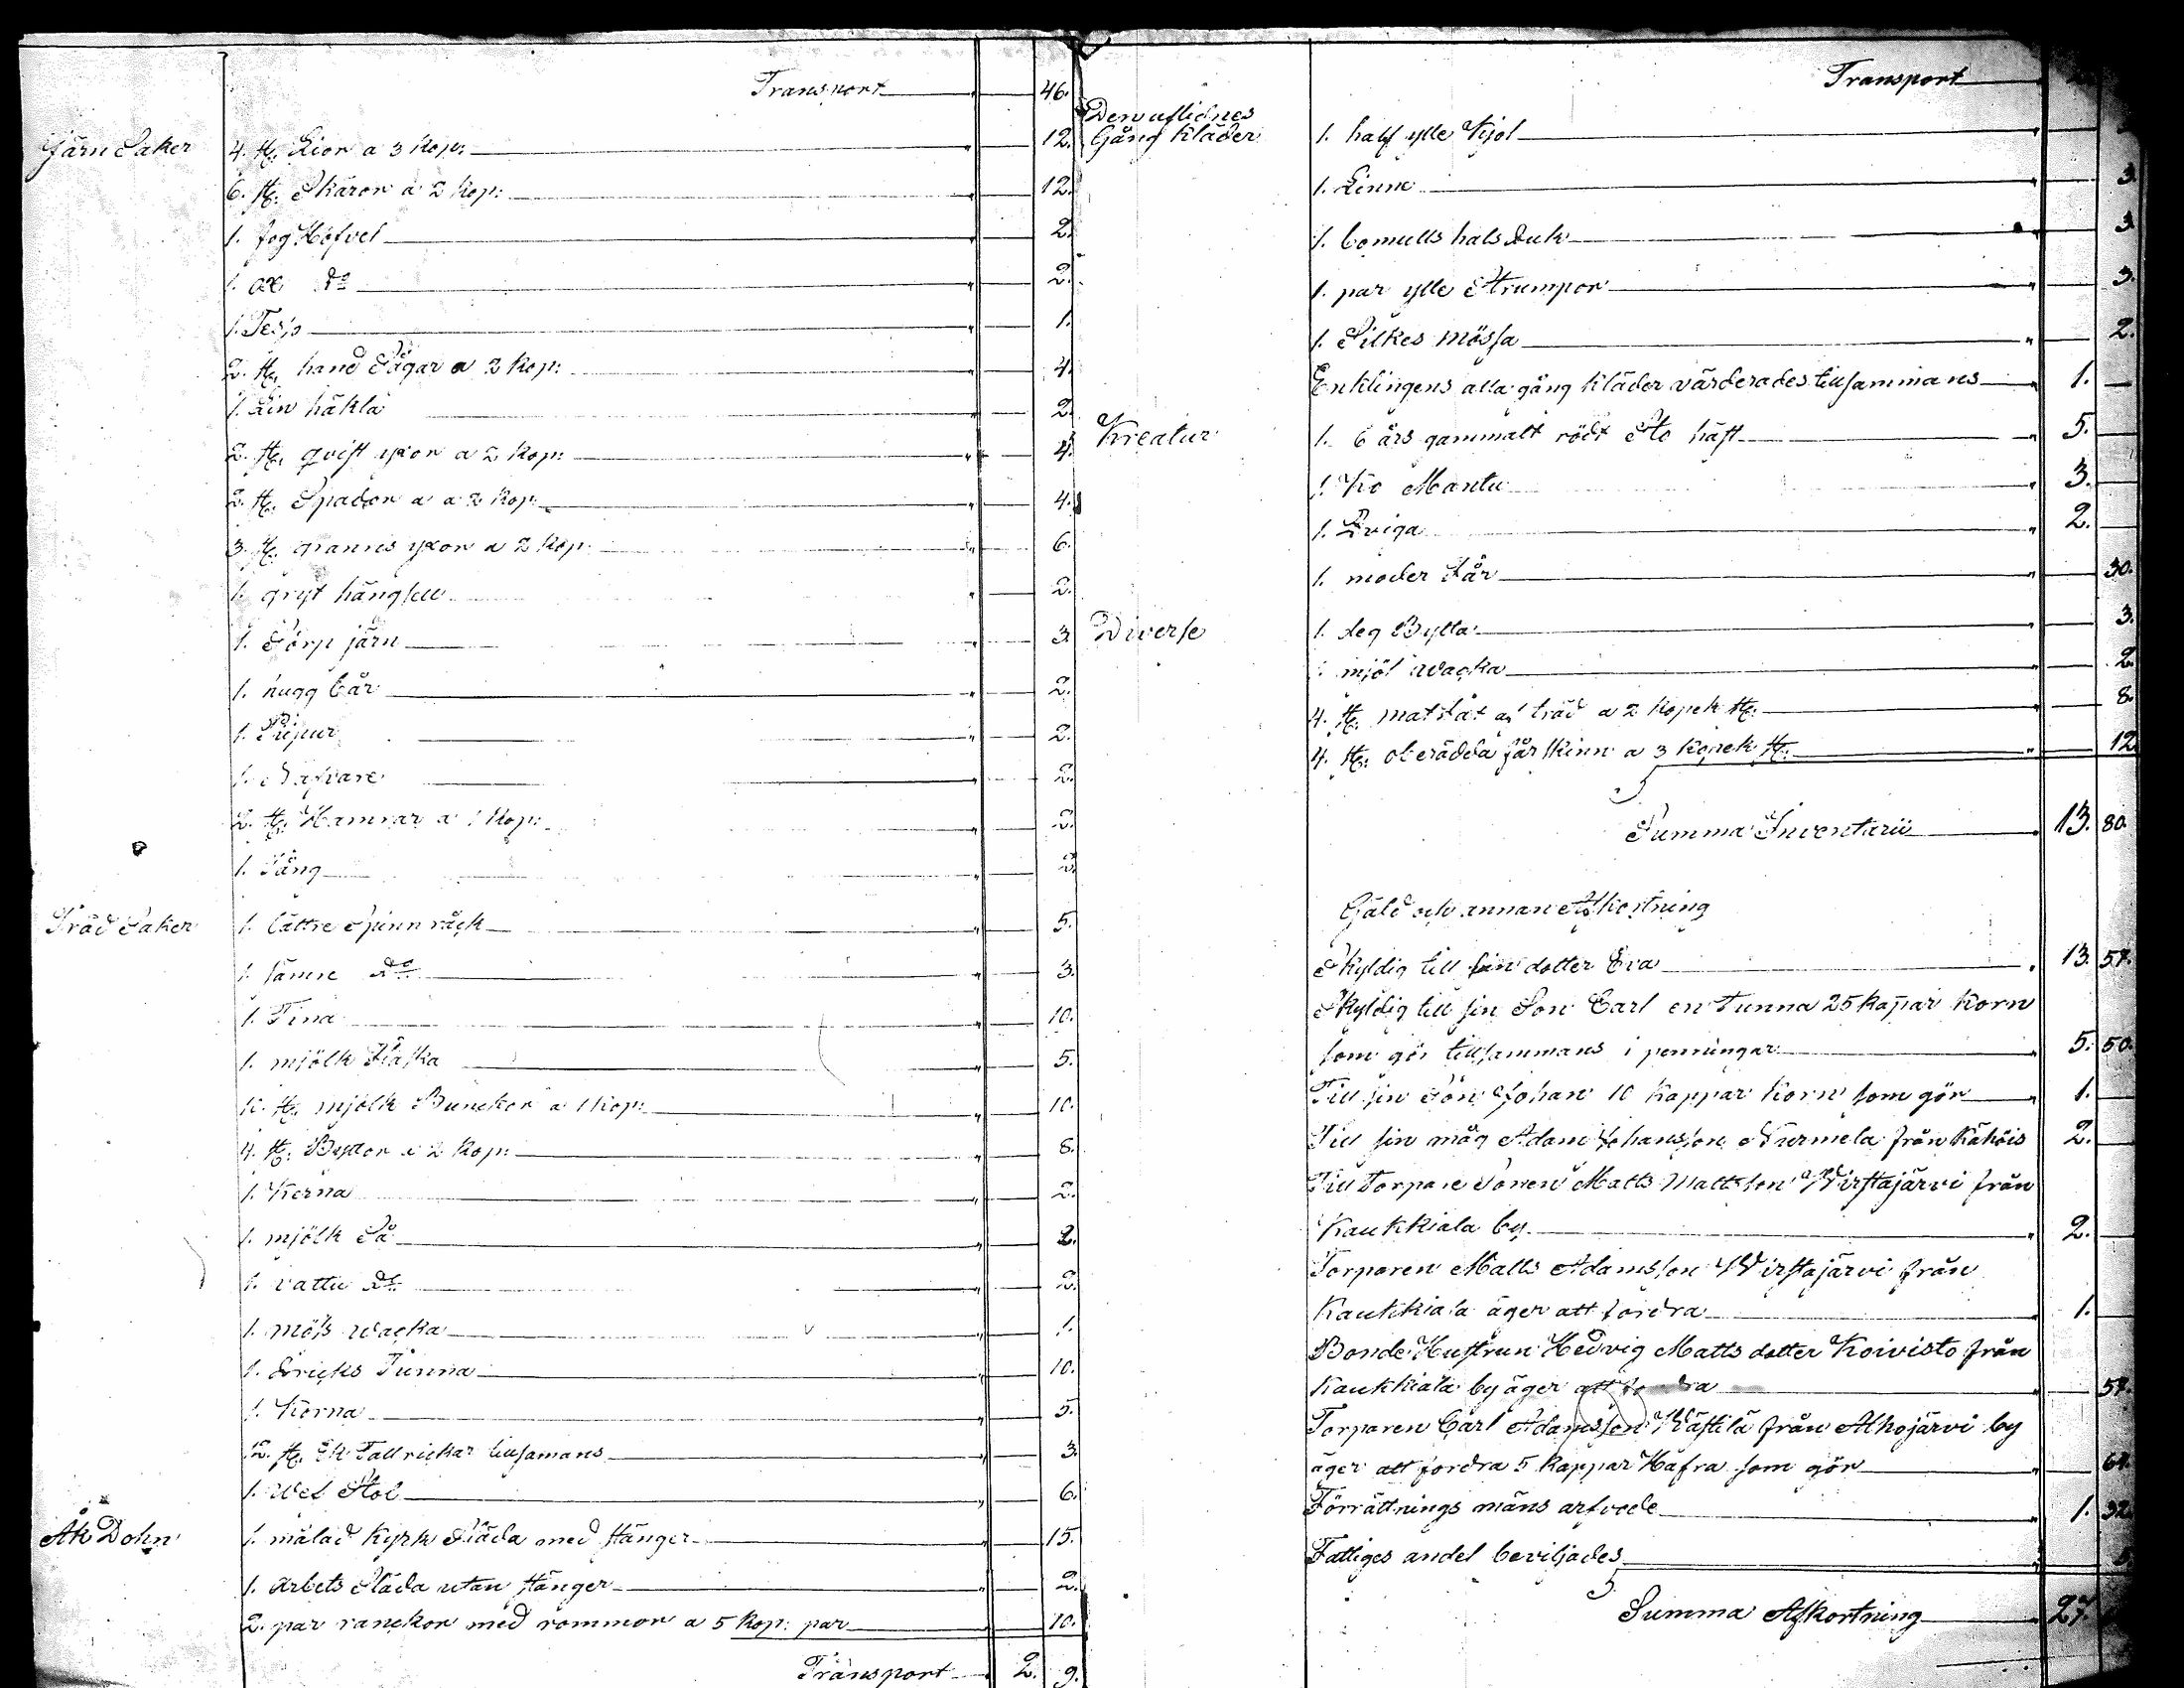 Transport 46.
Järn Saker 4. st. Lior a 3 Kop: 12.
6. st. Skäror a 2 Kop: 12.
1. fog Höfvel 2.
1. ax do 2.
1. 1.
2. st. hand Sågar a 2 Kop: 4.
1. Lin häkla 2.
2. st. qvist yxor a 2 Kop: 4.
2. st. Spador a a 2 Kop: 4.
3. st. yxor a 2 Kop. 6.
1. gryt hängsell 2.
1. järn 3.
1. hugg 2.
1. 2.
1. Nafvare 2.
2. st. Hamrar a 1 Kop: 2.
1. Tång 2.
Träd Saker 1. bättre Spinn råck 5.
1. sämre do 3.
1. Tina 10.
1. mjölk Flaska 5.
st. mjölk Bunckor a 1 Kop: 10.
4. st. Byttor a 2 Kop: 8.
1. Kerna 2.
1. mjölk Så 2.
1. vattu do 2.
1. wacka 1.
1. Dricks Tunna 10.
1. Korna 5.
12. st. Tallrickar tilsamans 3.
1. Stol 6.
Åk Dohn 1. målad Kyrk Släda med stänger 15.
1. arbets Släda utan stänger 2.
2. par ranckor med rommor a 5 Kop: par 10.
Transport 2. 9.
Transport
Den aflidnes
Gång Kläder 1. half ylle Kjol
1. Linne 3.
1. bomulls halsduk 3.
1. par ylle Strumpor 3.
1. Silkes mössa 2.
Enklingens alla gång kläder värderades tillsammans 1.
Kreatur 1. 6 års gammalt rödt Sto häst 5.
1. Ko Mantu 3.
1. Qviga 2.
1. moder Får 30.
Diverse 1. deg Bytta 3.
1. mjöl wacka 2.
4. st. matfat af träd a 2 Kopek st. 8.
4. st. oberädda fårskinn a 3 Kopek st. 12
Summa Inventarii 13. 80.
Gäld och annan Afkortning
Skyldig till sin dotter Eva 13. 57.
Skyldig till sin Son Carl en tunna 25 kapar Korn
som gör tillsammans i penningar 5. 50.
Till sin Son Johan 10 kappar Korn som gör 1.
Till sin måg Adam Johansson Nurmela från Kähöis 2.
Till Torpare Sonen Matts Mattsson Wirstajärvi från
Kaukkiala by 2.
Torparen Matts Adamsson Wirstajärvi från
Kaukkiala äger att fordra 1.
Bonde Hustrun Hedvig Matts dotter Koivisto från
Kaukkiala by äger att fordra 57.
Torparen Carl Adamsson Wästilä från Alhojärvi by
äger att fordra 5 kappar Hafra som gör 64.
Förrättnings mäns arfvode 1. 32.
Fattiges andel beviljades
Summa Afkortning 27.